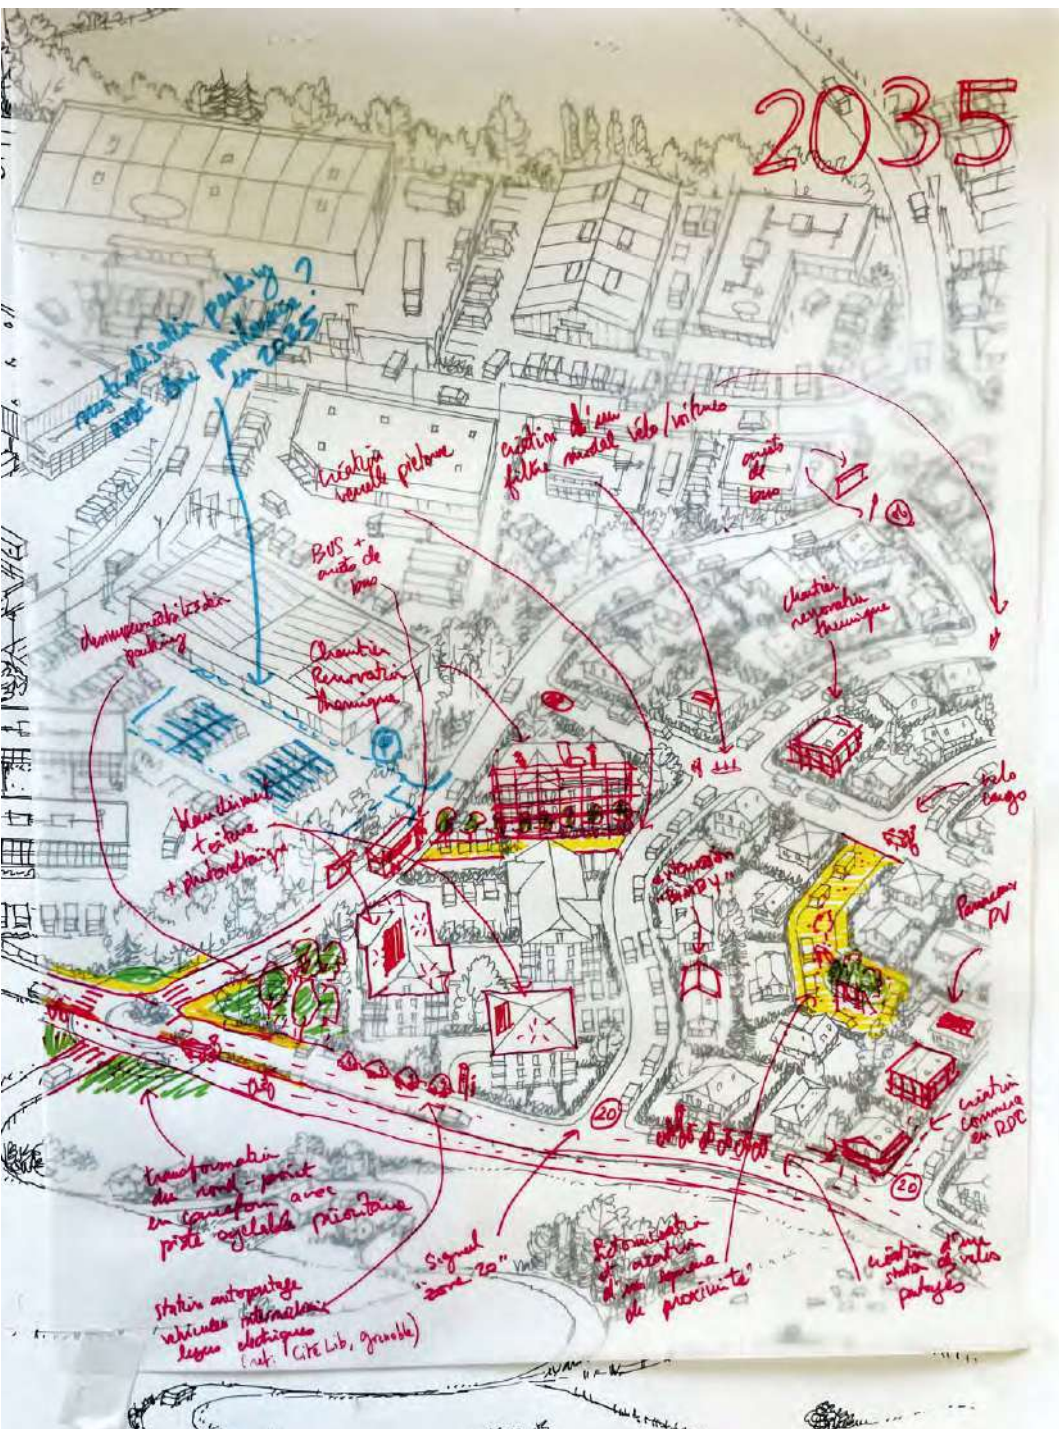 2035
mutualisation parking
avec
en 2025 ?
création
venelle piétonne
création d'un
filtre modal vélo/voitures
arrêts
de
bus
BUS +
arrêts de
bus
Chantier
renovation
thermique
desimperméabilisation
parking
Chantier
Renovation
thermique
vélo
cargo
+ toiture
+ photovoltaïque
extension
"BIMBY"
Panneaux
PV
création
commerce
en RDC
20
20
transformation
du rond-point
en carrefour avec
piste cyclable prioritaire
signal
"zone 20"
et création
d'un espace
de proximité
création d'une
station de vélos
partagés
station autopartage
véhicules intermédiaires
légers électriques
(ref: Cité Lib, Grenoble)